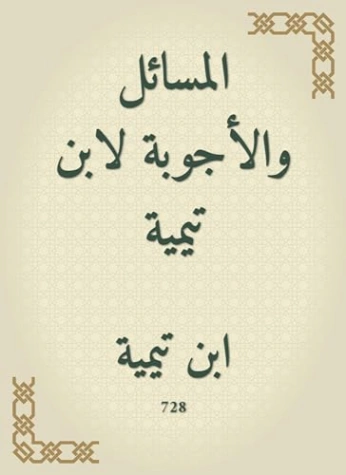 المسائل
والأجوبة لابن
تيمية
ابن تيمية
728